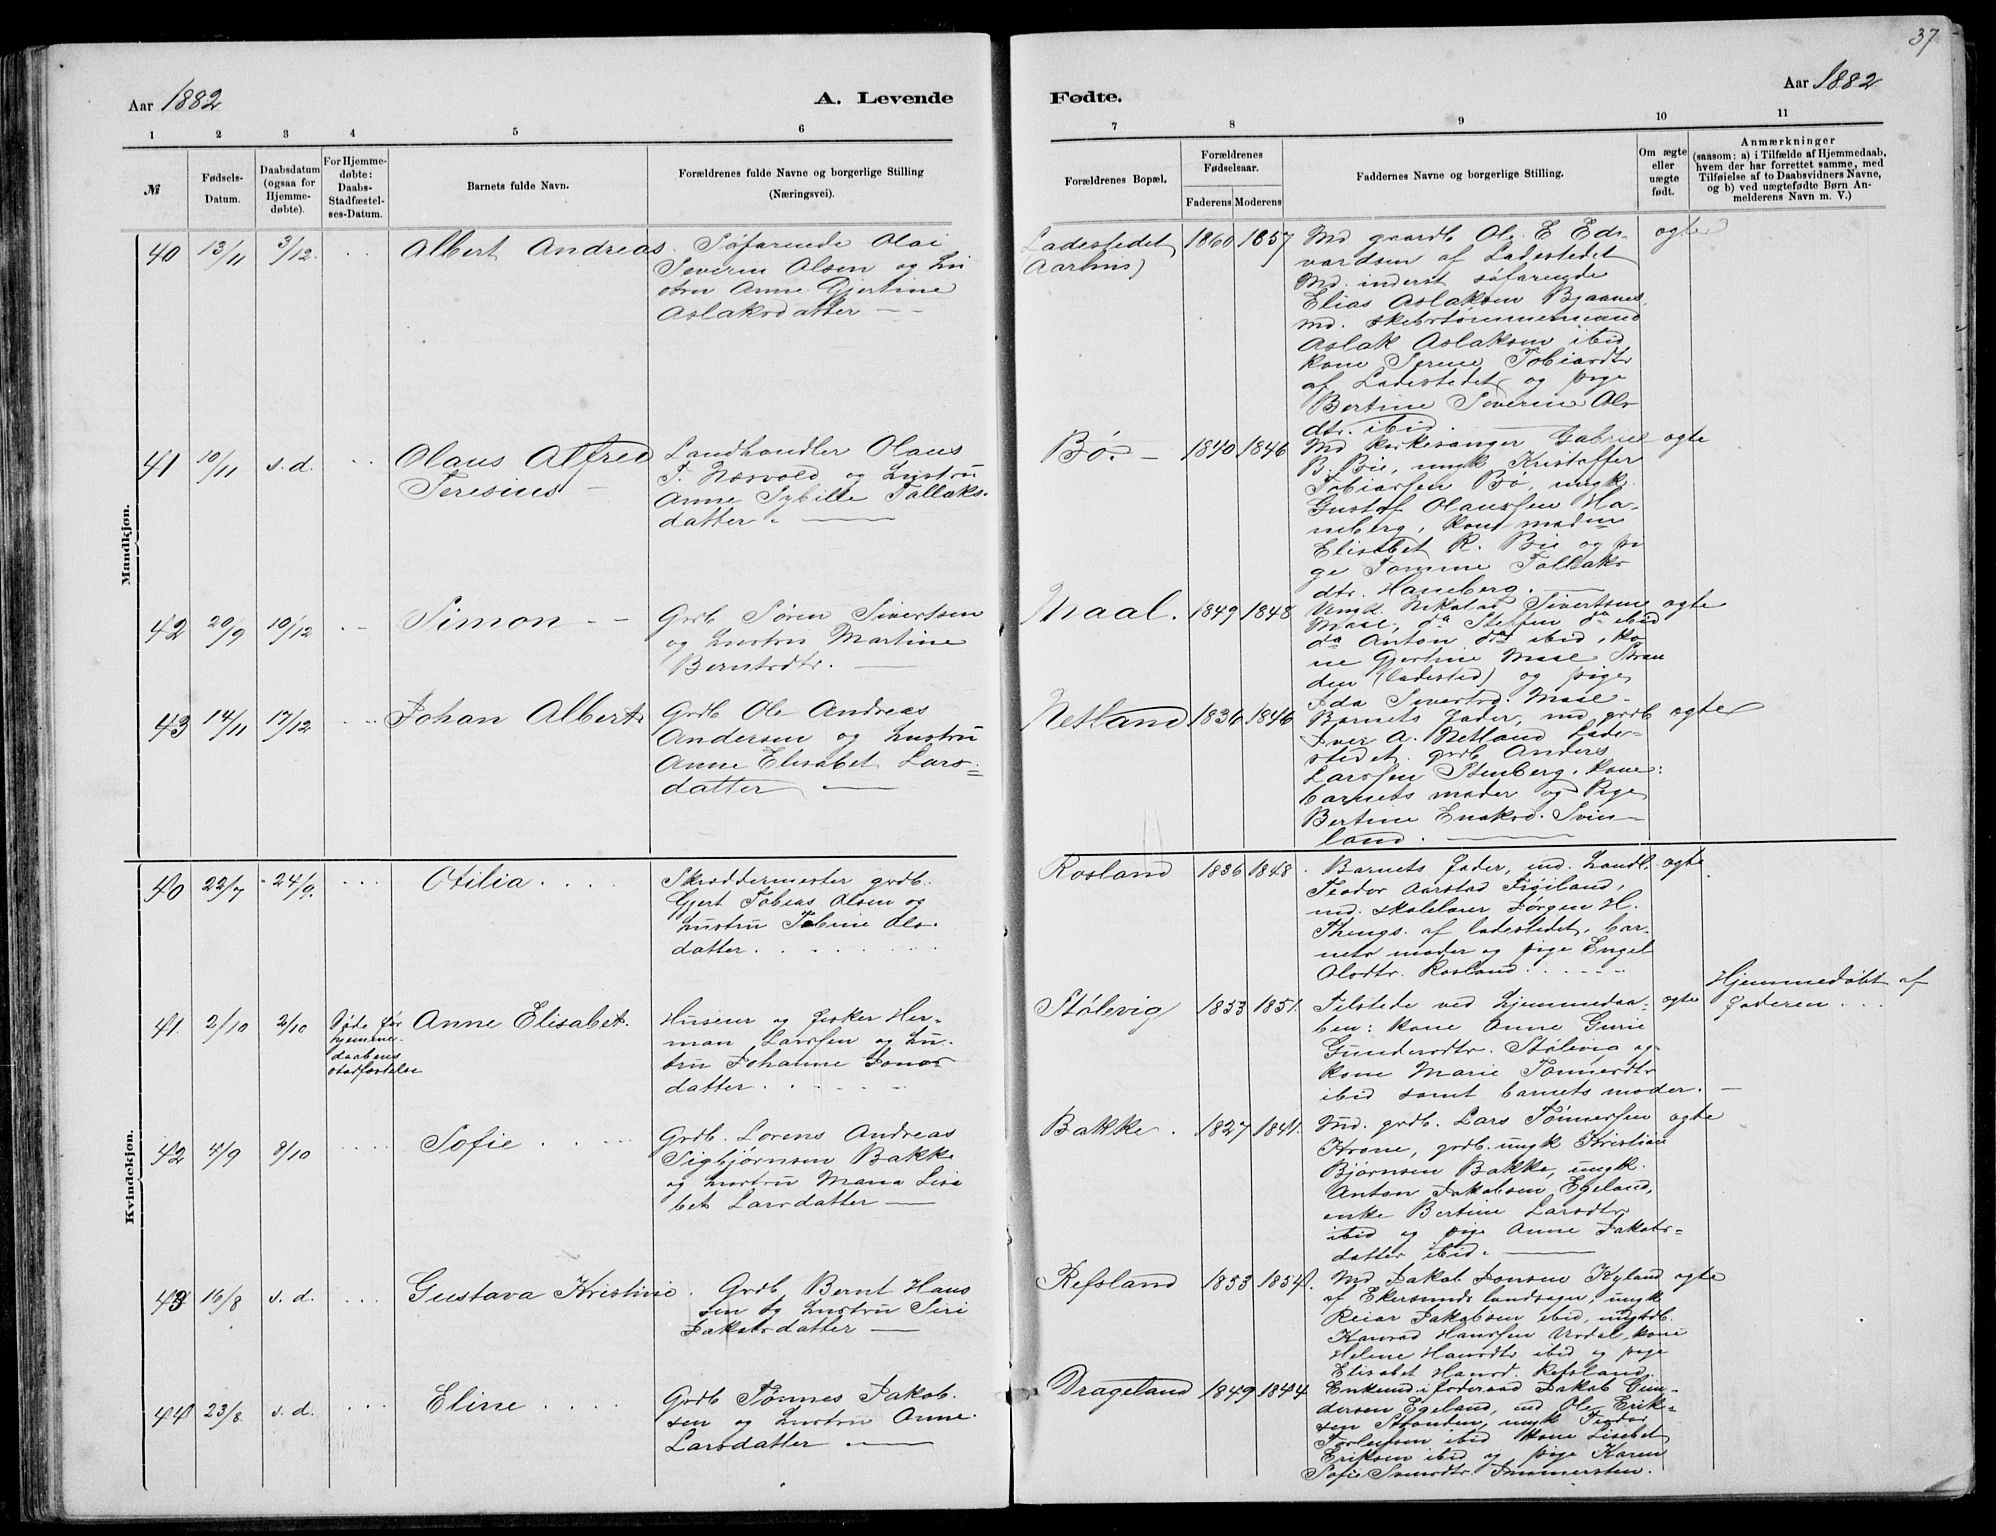 37
Aar 1882
A. Levende
Fødte.
Aar 1882
1
2
3
4
5
6
7
8
9
10
11
№
Fødsels-
Datum.
Daabsdatum
(ogsaa for
Hjemme-
døbte).
For Hjemme-
døbte:
Daabs-
Stadfæstel-
ses-Datum.
Barnets fulde Navn.
Forældrenes fulde Navne og borgerlige Stilling
(Næringsvei).
Forældrenes Bopæl.
Forældrenes
Fødselsaar.
Faderens
Moderens
Faddernes Navne og borgerlige Stilling.
Om ægte
eller
uægte
født.
Anmærkninger
(saasom: a) i Tilfælde af Hjemmedaab,
hvem der har forrettet samme, med
Tilføielse af to Daabsvidners Navne,
og b) ved uægtefødte Børn An-
melderens Navn m. V.)
Mandkjøn.
40
13/11
3/12.
Albert Andreas.
Søfarende Olai
Severin Olsen og Hu
stru Anne Gjertine
Aslaksdatter
Ladestedet
1860
1857
Md gaardb Ole E Ed-
vardsen af Ladestedet
Md. inderst søfarende
Elias Aslaksen Bjaanes,
md. skibstømmermand
Aslak Aslaksen ibid
kone Serene Tobiasdtr
af Ladestedet og pige
Bertine Severine Ols
dtr. ibid.
ægte
41
10/11
s. d.
Olaus Alfred
Teresius
Landhandler Olaus
T. Næsvold og Hustru
Anne Sybille Tollaks-
datter.
Bø.
1840
1846
Md kirkesanger Gabriel
B. Bie, ungk Kristoffer
Tobiassen Bø, ungk.
Gustof Olaussen Ha-
neberg, kone madm
Elisabet R. Bie og pi
ge Tomine Tollaks
dtr. Haneberg.
ægte
42
20/9
10/12
Simon
Grdb Søren Sivertsen
og Hustru Martine
Berntsdtr.
Maal.
1849
1848
Umd. Nikolai Sivertsen
Male, da Steffen da ibid
da Anton da ibid, ko
ne Gjertine Male Stran
den (ladested) og pige
Ida Sivertsd. Male
ægte
43
14/11
17/12
Johan Albert
Grdb Ole Andreas
Andersen og Hustru
Anne Elisabet Lars-
datter
Netland
1836
1846
Barnets fader, md grdb
Iver A. Netland Lade-
stedet. grdb Anders
Larssen Stenberg. kone:
barnets moder og Pige
Bertine Enoksd. Svin-
land.
ægte
Kvindekjøn.
40
22/7
24/9.
Otilia
Skræddermester grdb.
Gjert Tobias Olsen og
Hustru Tobine Ols-
datter.
Rosland
1836
1848
Barnets fader, md. Landh.
Teodor Aarstad Figiland,
md. skolelærer Jørgen H.
Thengs. af ladestedet, bar-
nets moder og pige Engel
Olsdtr. Rosland.
ægte
41.
2/10
2/10
Døde før
hjemme-
daabens
stadfæstelse
Anne Elisabet.
Husmr og fisker Her-
man Larssen og Hu-
stru Johanne Jonas
datter.
Stølevig
1853
1851.
Tilstede ved hjemmedaa-
ben: kone Anne Gurie
Gundersdtr. Stølevig og
kone Marie Tønnesdtr
ibid samt barnets moder.
ægte
Hjemmedøbt af
faderen
42
4/9
8/10
Sofie
Grdb. Lorens Andreas
Sigbjørnsen Bakke
og hustru Maria Lisa
bet Larsdatter
Bakke.
1827
1841.
Md. grdb. Lars Tønnessen
Krone, grdb. ungk Kristian
Bjørnsen Bakke, ungk.
Anton Jakobsen Egeland,
enke Bertine Larsdtr
ibid og pige Anne Jakobs-
datter ibid.
ægte
43
16/8
s. d.
Gustava Kristine
Grdb Bernt Hans
sen og hustru Siri
Jakobsdatter
Refsland
1853
1854.
Md Jakob Jonsen Kyland
af Ekersunds landsogn, ungk
Reiar Jakobsen ibid, ungk grdb.
Konrad Hanssen Urdal, kone
Helene Hansdtr ibid og pige
Elisabet Hansd. Refsland.
ægte
44
23/8
s. d.
Eline
Grdb Tønnes Jakob-
sen og Hustru Anne
Larsdatter
Drageland
1849
1844
Enkemd i føderaad Jakob Gun-
dersen Egeland, md Ole Erik-
sen Stranden, ungk Teodor
Torleifsen ibid kone Lisebet
Eriksen ibid og pige Karen
Sofie Svensdtr. Immersten.